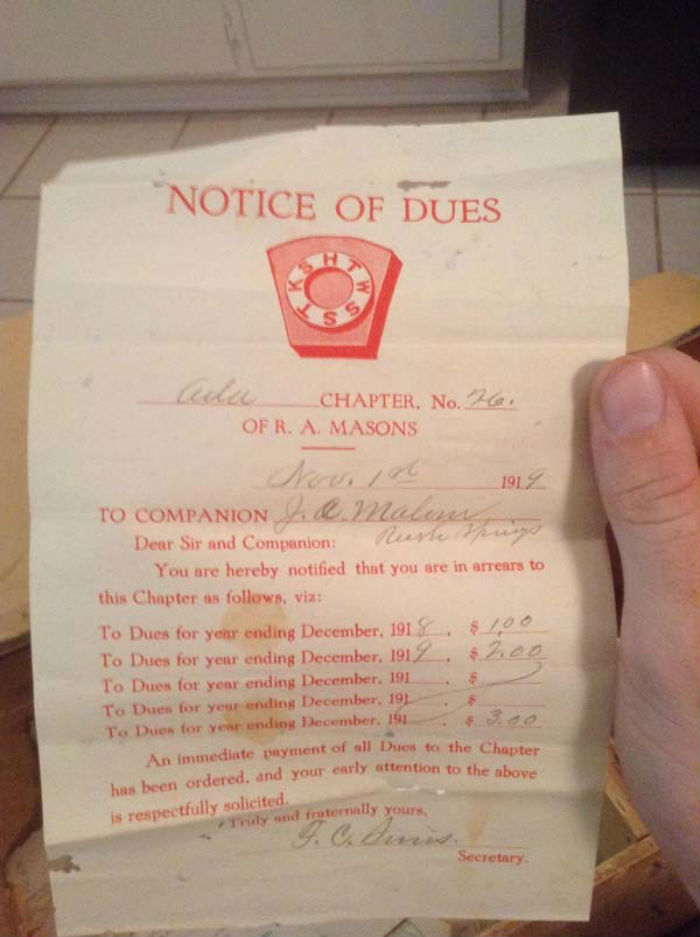 NOTICE OF DUES
K S H T W S S T
Ada CHAPTER, No. 26.
OF R. A. MASONS
Nov. 1st 1919
TO COMPANION J. C. Malone
Rush Springs
Dear Sir and Companion:
You are hereby notified that you are in arrears to
this Chapter as follows, viz:
To Dues for year ending December, 1918 . $ 1.00
To Dues for year ending December, 1919 . $ 2.00
To Dues for year ending December, 191 . $
To Dues for year ending December, 191 . $
To Dues for year ending December, 191 . $ 3.00
An immediate payment of all Dues to the Chapter
has been ordered, and your early attention to the above
is respectfully solicited.
Truly and fraternally yours,
F. C.
Secretary.